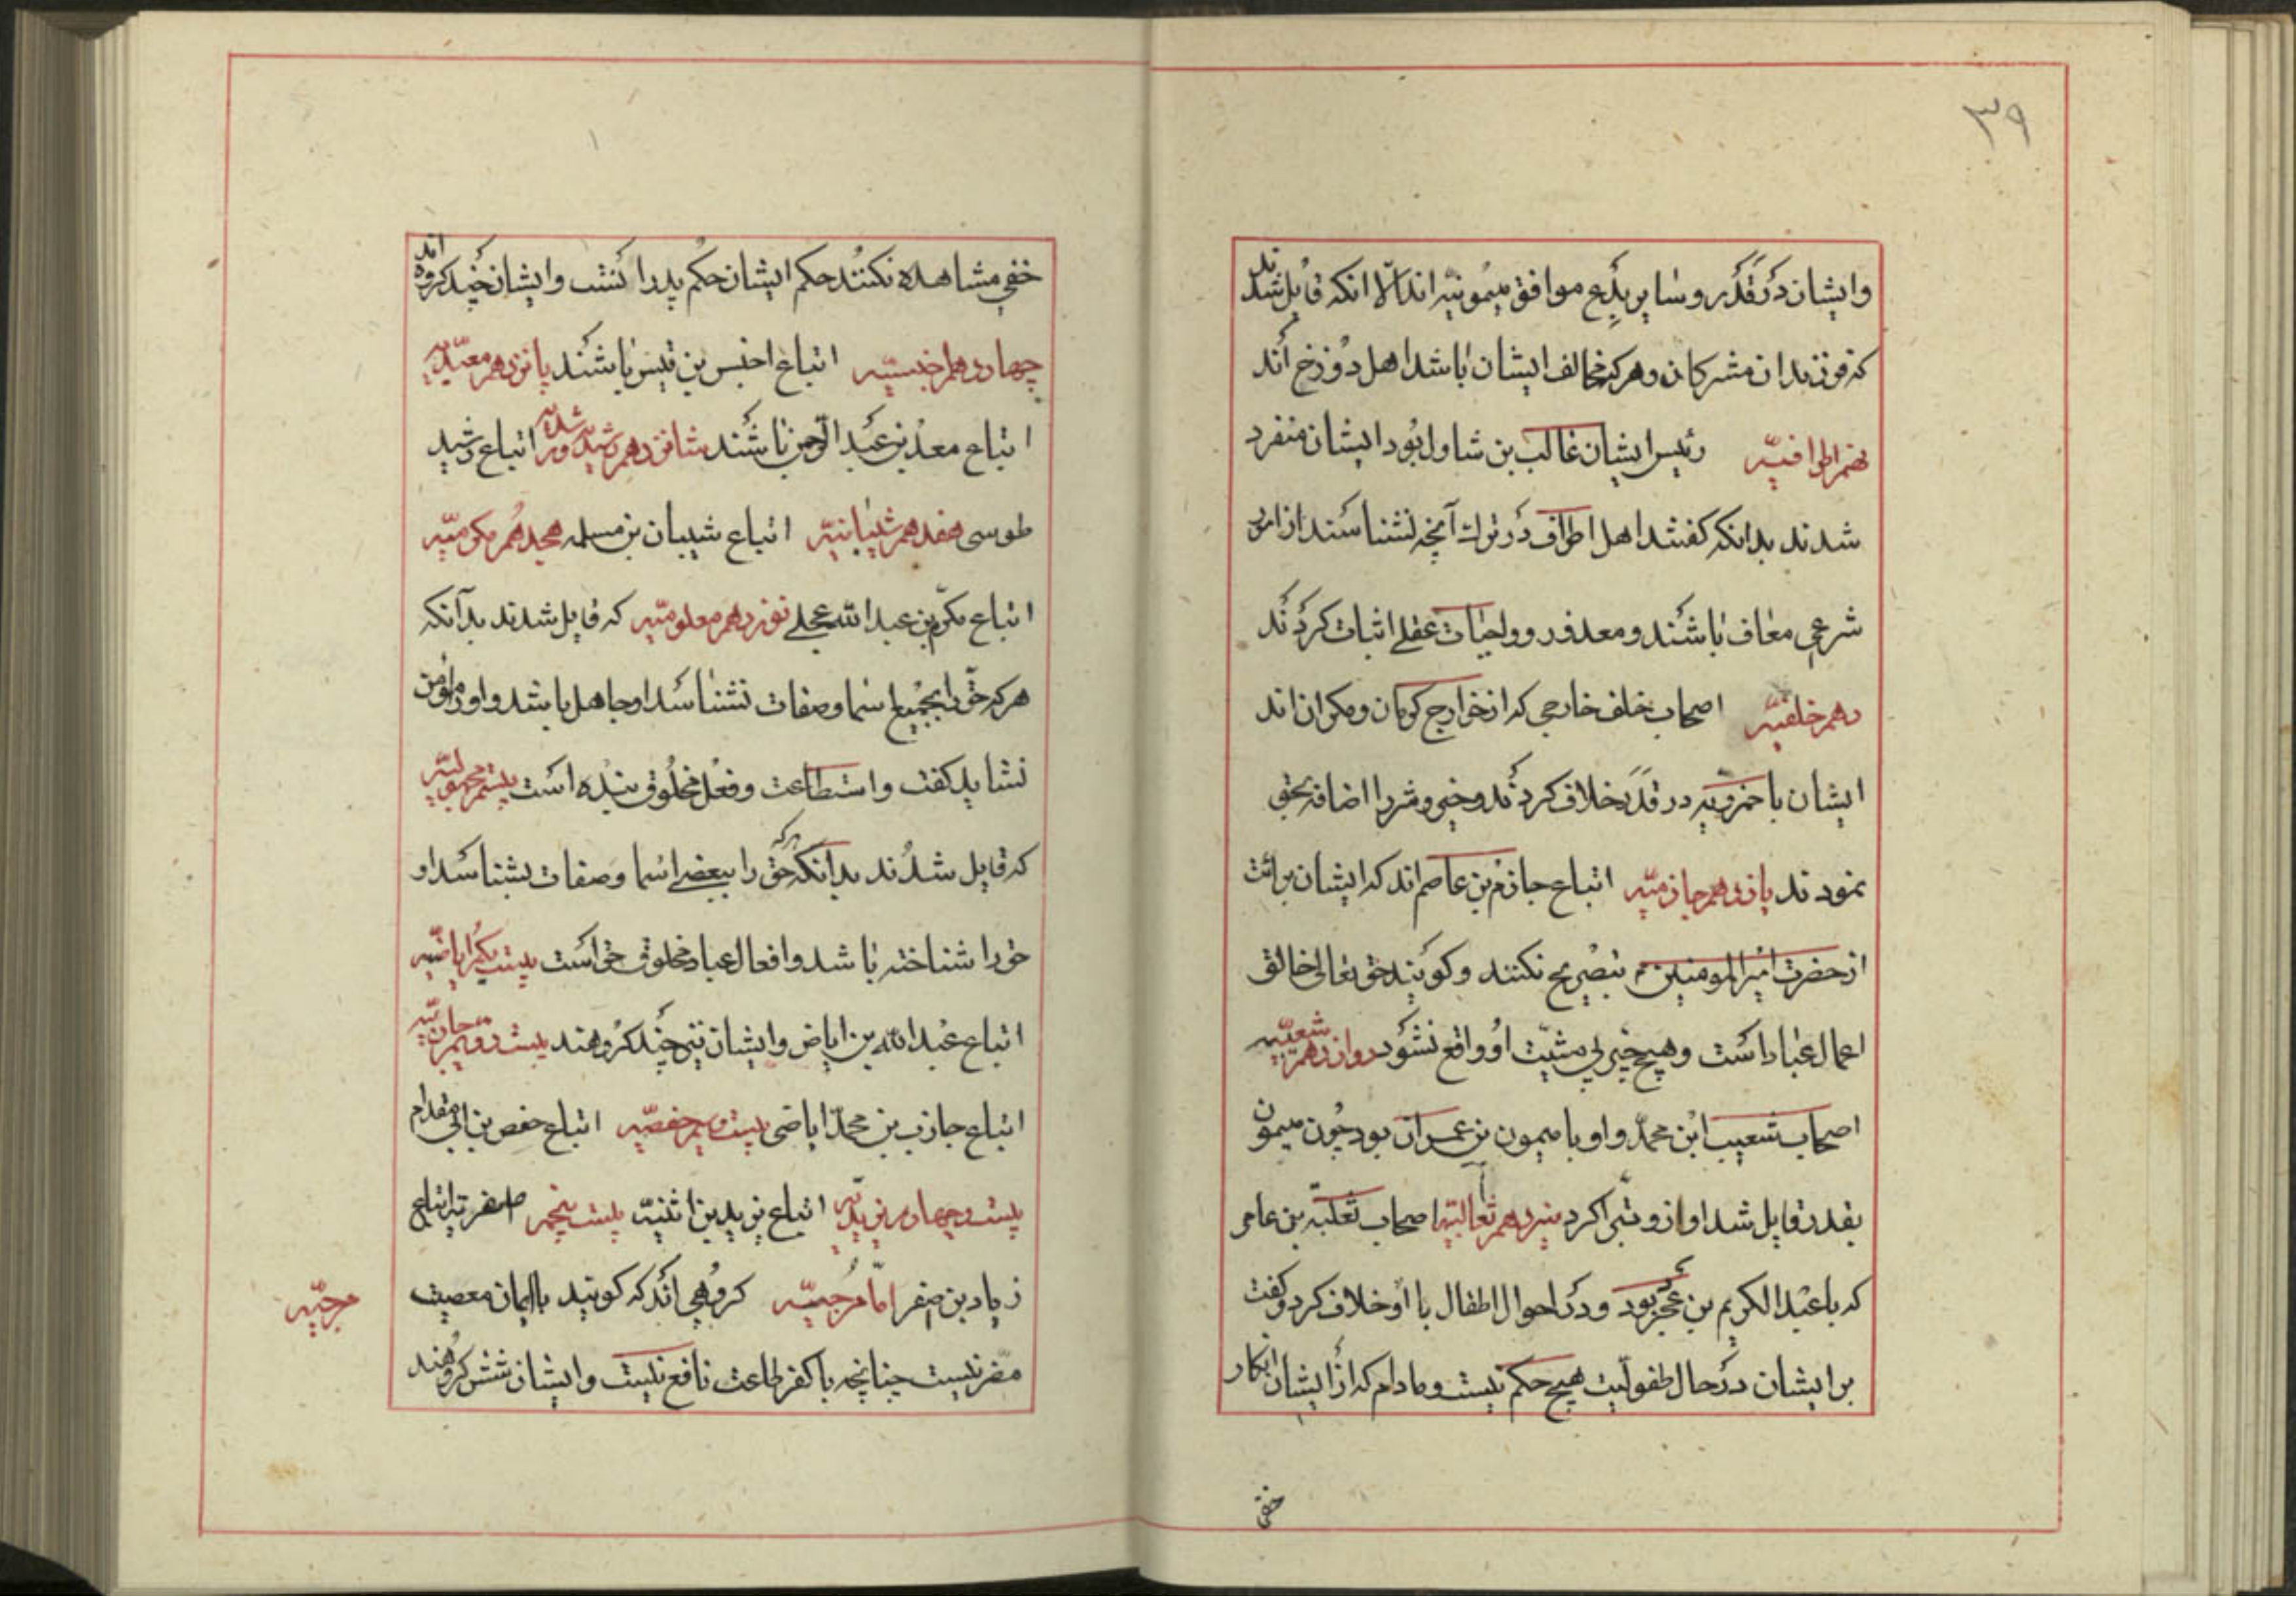 ۳۹
وایشان در قدر و سایر بدع موافق میمونیه اند الّا انکه قایل شدند
که فرزندان مشرکان و هرکه مخالف ایشان باشد اهل دوزخ اند
نهم اطرافیّه رئیس ایشان غالب بن شاول بود ایشان منفرد
شدند بدانکه کفتند اهل اطراف در ترک آنچه نشناسند از امور
شرعی معاف باشند و معذور و واجبات عقلی اثبات کردند
دهم خلفیّه اصحاب خلف خارجی که از خوارج کرمان و مکران اند
ایشان با حمزویّه در قدر خلاف کردند و خیر و شر را اضافه بحق
نمودند یازدهم جازمیّه اتباع جازم بن عاصم اند که ایشان برائت
از حضرت امیرالمومنین تبصریح نکنند و کویند حق تعالی خالق
اعمال عباد است و هیچ چیز بی مشیّت او واقع نشود دوازدهم شعیبّیه
اصحاب شعیب ابن محمّد و او با میمون بن عمران بود چون میمون
بقدر قایل شد او ازو تبرّا کرد سیزدهم ثعالبیّه اصحاب ثعلبه بن عامر
که با عبدالکریم بن عجرد بود و در احوال اطفال با او خلاف کرد و کفت
بر ایشان در حال طفولّیت هیچ حکم نیست و مادام که از ایشان انکار
حقی
خفی مشاهده نکنند حکم ایشان حکم پدر است وایشان چند کروه اند
چهاردهم اخنسیّه اتباع اخنس بن قیس باشند پانزدهم معبدیّه
اتباع معبد بن عبد الرّحمن باشند شانزدهم رشیدیه اتباع رشید
طوسی هفدهم شیبانیّه اتباع شیبان بن مسلمه هجدهم مکرمیّه
اتباع مکرّم بن عبدالله عجلی نوزدهم معلومیّه که قایل شدند بدآنکه
هرکه حقّ را بجمیع اسما و صفات نشناسد او جاهل باشد و او را مؤمن
نشاید کفت و استطاعت و فعل مخلوق بنده است بیستم مجهولیّه
که قایل شدند بدآنکه هرکه حق را ببعضی اسما و صفات بشناسد او
حق را شناخته باشد و افعال عباد مخلوق حق است بیست یکم اباضیّه
اتباع عبدالله بن اباض وایشان نیز چند کروهند بیست دویم
اتباع جازب بن محمّد اباضی بیست و سیم حفصیّه اتباع حفص بن ابی مقدام
بیست و چهارم یزیدیّه اتباع یزید بن انثنیّه بیست پنجم اصفریّه اتباع
زیاد بن اصفر امّا مُرجیئیّه کروهی اند که کویند با ایمان معصیت
مرجیّه
مضر نیست چنانچه با کفر طاعت نافع نیست و ایشان شش کروهند